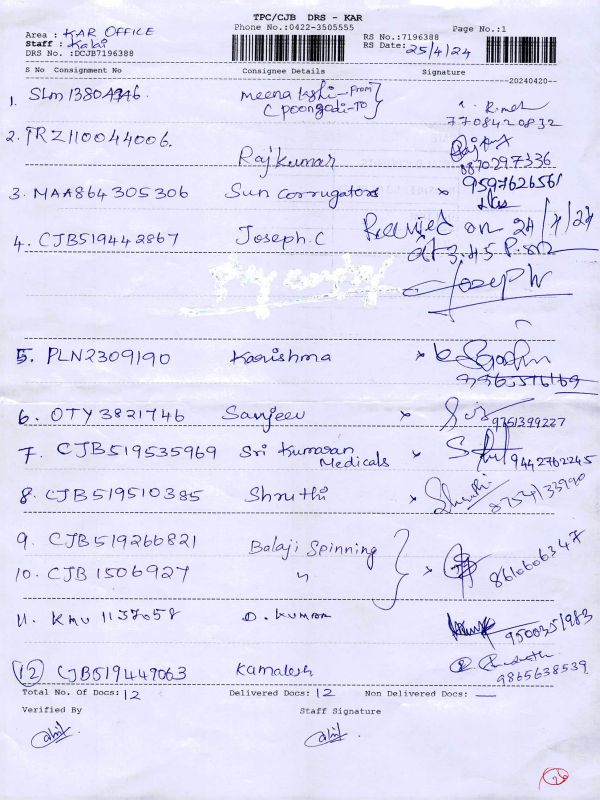 TPC/CJB DRS - KAR
Phone No.:0422-3505555
Page No.:1
Area : KAR OFFICE
Staff : Kalai
DRS No. :DCJB7196388
RS No.:7196388
RS Date: 25/4/24
S No Consignment No Consignee Details Signature
--20240420--
1. SLm13804946. Meenakshi-From
(Poongodi-To)
7708420832
2. TRZ110044006.
Rajkumar 8870297336
3. MAA864305306 Sun Corrugators x 9597626561
4. CJB519442867 Joseph.C Received on
at 3.45 P.m
Joseph
5. PLN2309190 Karishma x
6. OTY3821746 Sanjeev x 9751399227
7. CJB519535969 Sri Kumaran
Medicals x 9442762245
8. CJB519510385 Shruthi x Shruthi 8754133990
9. CJB519266821 Balaji Spinning
10. CJB1506927 " x 8610606347
11. KMU 1137058 D. KUMAR 9500351983
12 CJB519447063 Kamalesh
9865638539
Total No. Of Docs: 12 Delivered Docs: 12 Non Delivered Docs: —
Verified By Staff Signature
26